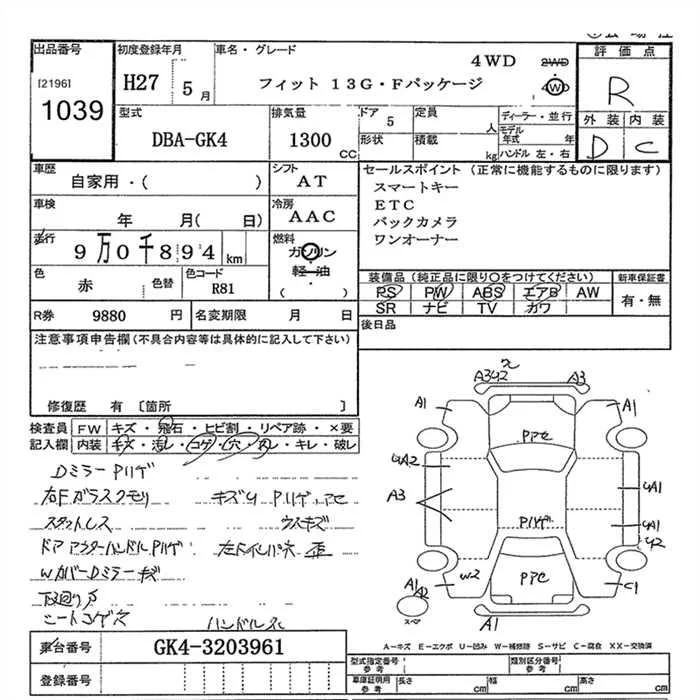 出品番号 初度登録年月 車名・グレード 4WD 2WD 評価点
[2196] H27 5月 フィット 13G・Fパッケージ 4WD R
1039 型式 排気量 ドア 5 定員 人 ディーラー・並行 外装 内装
DBA-GK4 1300 CC 形状 積載 kg モデル年式 年 D C
ハンドル 左・右
車歴 シフト セールスポイント (正常に機能するものに限ります)
自家用・( ) AT スマートキー
車検 冷房 ETC
年 月( 日) AAC バックカメラ
走行 燃料 ワンオーナー
9万0千894 km ガソリン
軽油
色 色替 色コード ( ) 装備品 (純正品に限り○をつけてください) 新車保証書
赤 R81 PS PW ABS エアB AW 有・無
R券 9880 円 名変期限 月 日 SR ナビ TV カワ
注意事項申告欄 (不具合内容等は具体的に記入して下さい) 後日品
修復歴 有 [箇所 ]
検査員 FW キズ・飛石・ヒビ割・リペア跡・×要
記入欄 内装 キズ・汚レ・コゲ・穴・スレ・キレ・破レ
DミラーPリゲ
右Fガラスクモリ
スタットレス ウスキズ
ドアアウターハンドルPリゲ
WカバーDミラーキズ
シートコゲ穴 ハンドルスレ
A3 A1 A1
Pアセ
A2 A1
A3
Pリゲ A1
W2 PアC C1
スペア A1
A-キズ E-エクボ U-凹み W-補修跡 S-サビ C-腐食 XX-交換済
車台番号 GK4-3203961
登録番号
型式指定番号 参考 類別区分番号 参考
車庫証明用 参考 長さ cm 幅 cm 高さ cm